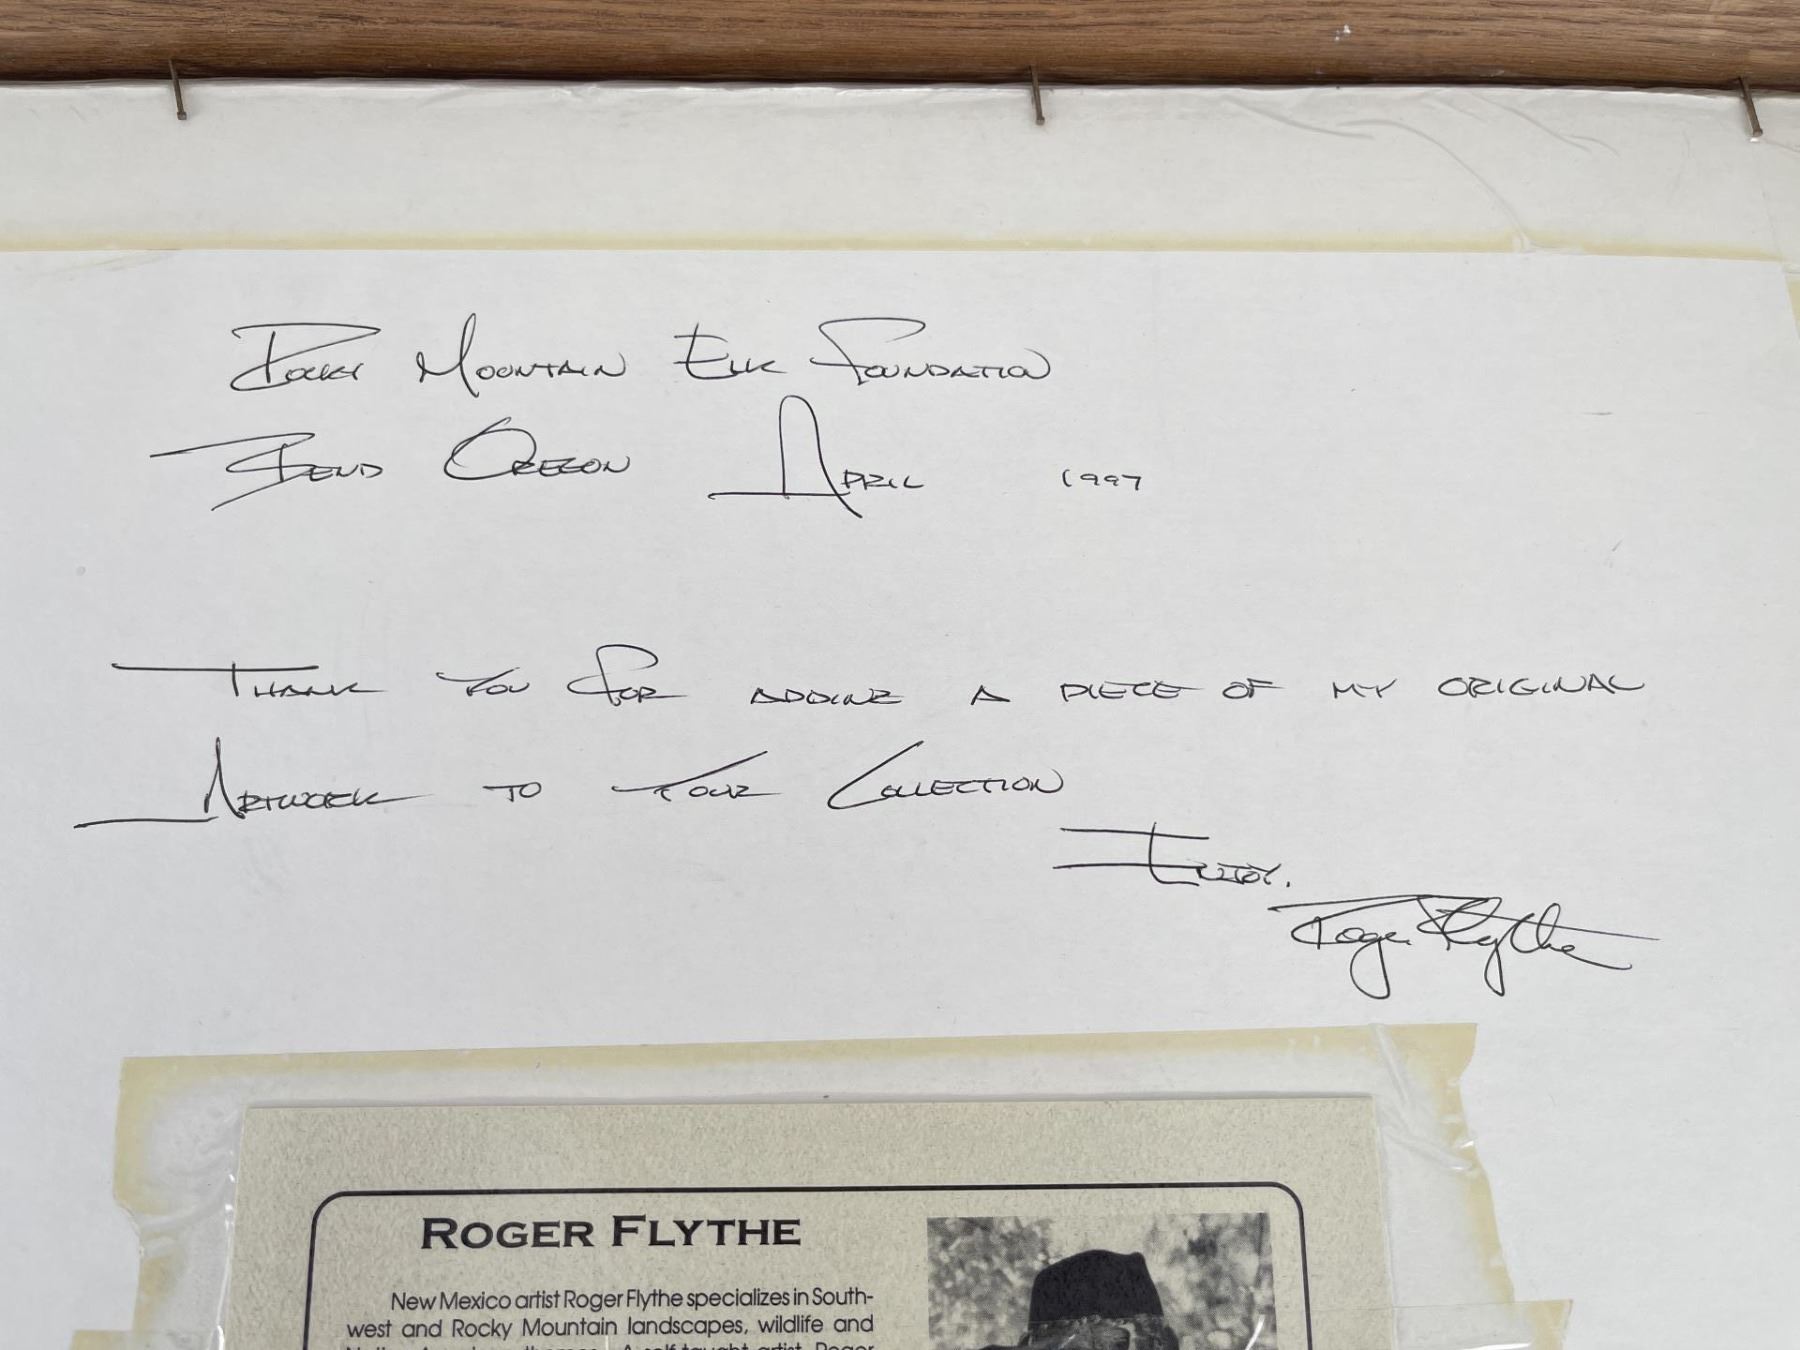 Rocky Mountain Elk Foundation
Bend Oregon April 1997
Thank You For adding a piece of my original
Artwork to Your Collection
Enjoy.
Roger Flythe
ROGER FLYTHE
New Mexico artist Roger Flythe specializes in South-
west and Rocky Mountain landscapes, wildlife and
A self-taught artist, Roger